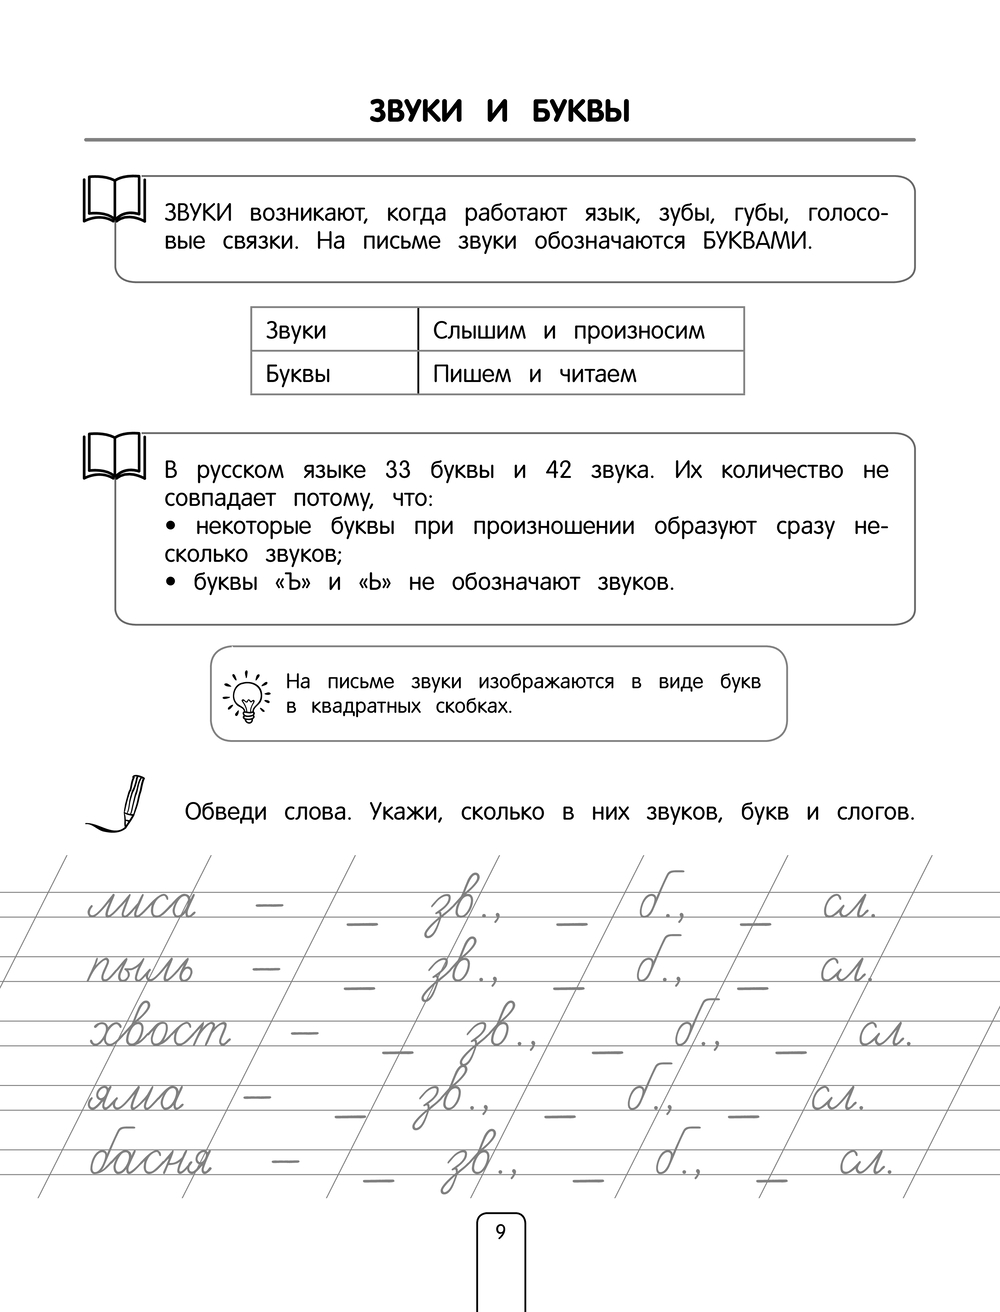 ЗВУКИ И БУКВЫ
ЗВУКИ возникают, когда работают язык, зубы, губы, голосо-
вые связки. На письме звуки обозначаются БУКВАМИ.
Звуки Слышим и произносим
Буквы Пишем и читаем
В русском языке 33 буквы и 42 звука. Их количество не
совпадает потому, что:
• некоторые буквы при произношении образуют сразу не-
сколько звуков;
• буквы «Ъ» и «Ь» не обозначают звуков.
На письме звуки изображаются в виде букв
в квадратных скобках.
Обведи слова. Укажи, сколько в них звуков, букв и слогов.
лиса — _ зв., _ б., _ сл.
пыль — _ зв., _ б., _ сл.
хвост — _ зв., _ б., _ сл.
яма — _ зв., _ б., _ сл.
басня — _ зв., _ б., _ сл.
9